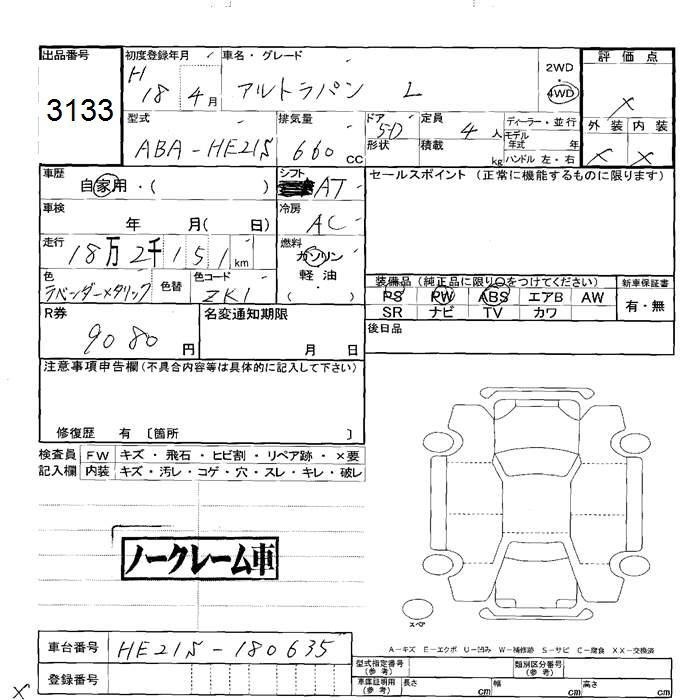 出品番号 初度登録年月 車名・グレード 2WD 評価点
3133 H 18 5 4月 アルトラパン L ・4WD X
型式 排気量 ドア 定員 ディーラー・並行 外装 内装
ABA-HE21S 660cc 5D 4人 モデル年式 年 X X
形状 積載 kg ハンドル 左・右
車歴 シフト セールスポイント (正常に機能するものに限ります)
自家用・( ) AT
車検 冷房
年 月( 日) AC
走行 燃料
18万2千151km ガソリン
色 色替 色コード 軽油 装備品 (純正品に限り○をつけてください) 新車保証書
ラベンダーメタリック ZK1 ( ) PS PW ABS エアB AW 有・無
R券 名変通知期限 SR ナビ TV カワ
9080円 月 日 後日品
注意事項申告欄(不具合内容等は具体的に記入して下さい)
修復歴 有 〔箇所 〕
検査員 FW キズ・飛石・ヒビ割・リペア跡・×要
記入欄 内装 キズ・汚レ・コゲ・穴・スレ・キレ・破レ
ノークレーム車
スペア
A-キズ E-エクボ U-凹み W-補修跡 S-サビ C-腐食 XX-交換済
車台番号 HE21S-180635 型式指定番号(参考) 類別区分番号(参考)
登録番号 車庫証明用(参考) 長さ cm 幅 cm 高さ cm
X